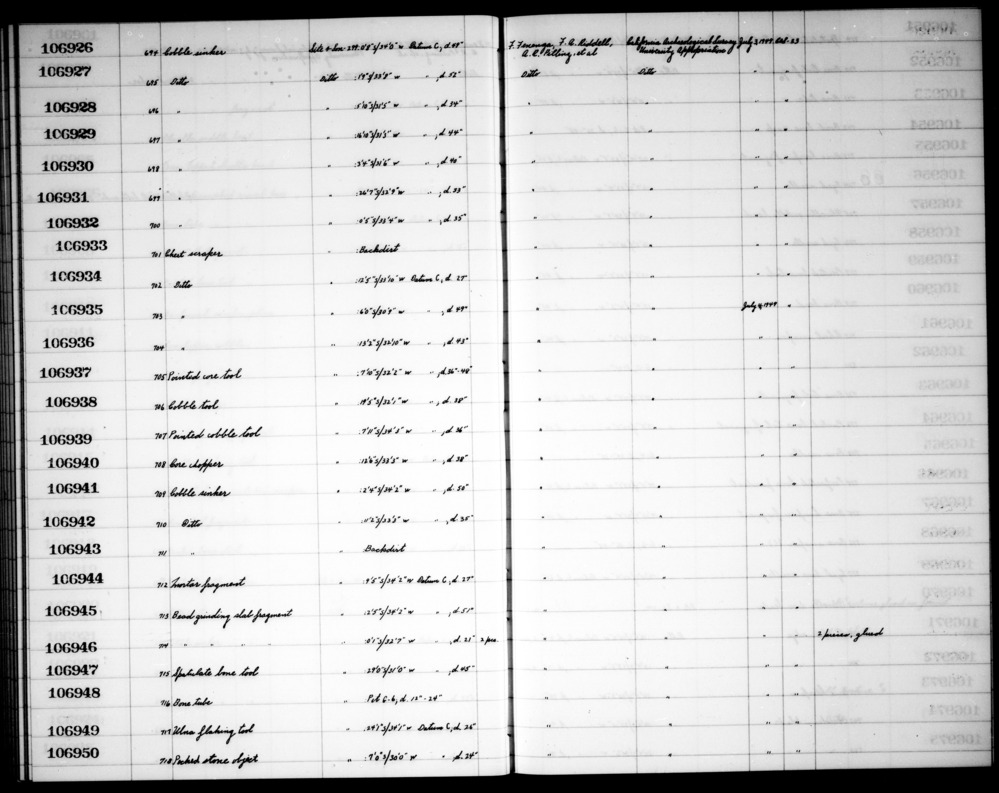 106926 694 Cobble sinker Site 4-Ker-399: 0'8"S/34'0"W Datum C, d. 48" F. Fenenga, F. A. Riddell, California Archaeological Survey July 3, 1949 Oct. 53
A. R. Pilling, et al University Appropriation
106927 695 Ditto Ditto : 19"S/33'8" W " , d. 52" Ditto Ditto " "
106928 696 " " : 5'0"S/31'5" W " , d. 34" " " " "
106929 697 " " : 16'0"S/31'5" W " , d. 44" " " " "
106930 698 " " : 3'4"S/31'6" W " , d. 40" " " " "
106931 699 " " : 26'7"S/32'9" W " , d. 33" " " " "
106932 700 " " : 0'5"S/33'4" W " , d. 35" " " " "
106933 701 Chert scraper " : Backdirt " " " "
106934 702 Ditto " : 12'5"S/31'10" W Datum C, d. 27" " " " "
106935 703 " " : 6'0"S/30'9" W " , d. 49" " " July 4, 1949 "
106936 704 " " : 13'5"S/32'10" W " , d. 43" " " " "
106937 705 Pointed core tool " : 7'10"S/32'2" W " , d. 36"-48" " " " "
106938 706 Cobble tool " : 19'5"S/32'1" W " , d. 28" " " " "
106939 707 Pointed cobble tool " : 7'11"S/34'5" W " , d. 36" " " " "
106940 708 Core chopper " : 12'6"S/33'5" W " , d. 38" " " " "
106941 709 Cobble sinker " : 2'4"S/34'2" W " , d. 50" " " " "
106942 710 Ditto " : 11'2"S/33'5" W " , d. 35" " " " "
106943 711 " " Backdirt " " " "
106944 712 Mortar fragment " : 9'5"S/34'2" W Datum C, d. 27" " " " "
106945 713 Bead grinding slab fragment " : 2'5"S/34'2" W " , d. 51" " " " "
106946 714 " " " " " : 0'1"S/32'7" W " , d. 21" 2 pcs. " " " " 2 pieces, glued
106947 715 Spatulate bone tool " : 29'0"S/31'0" W " , d. 45" " " " "
106948 716 Bone tube " Pit G-6, d. 12"-24" " " " "
106949 717 Ulna flaking tool " : 24'1"S/34'1" W Datum C, d. 26" " " " "
106950 718 Pecked stone object " : 7'0"S/30'0" W " , d. 24" " " " "